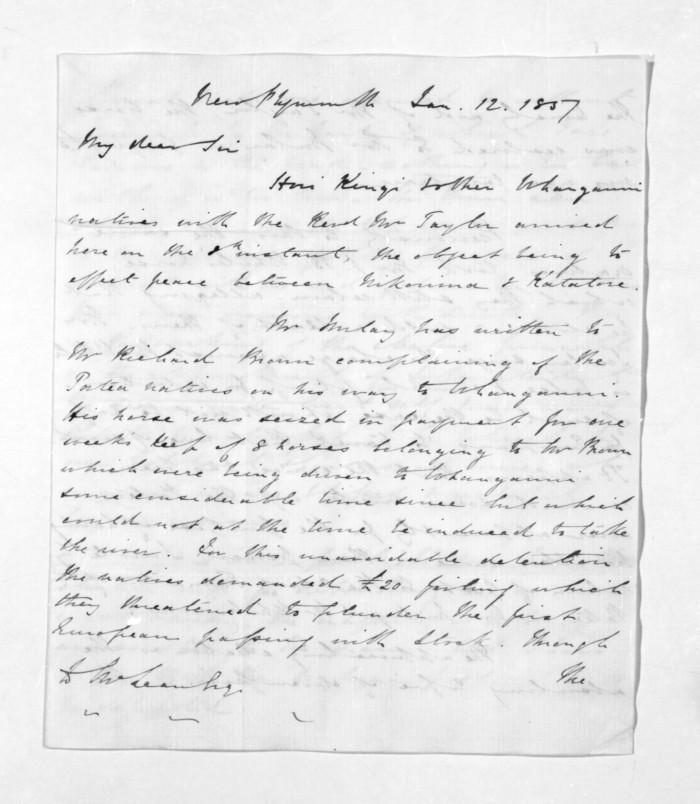 New Plymouth Jan. 12. 1857
My dear Sir
Hori Kingi & other Whanganui
natives with the Revd Mr Taylor arrived
here on the 8th instant, the object being to
effect peace between Nikorima & Katatore.
Mr Imlay has written to
Mr Richard Brown complaining of the
Patea natives on his way to Whanganui.
His horse was seized in payment for one
weeks keep of 8 horses belonging to Mr Brown
which were being driven to Whanganui
some considerable time since but which
could not at the time be induced to take
the river. For this unavoidable detention
the natives demanded £20 failing which
they threatened to plunder the first
European passing with stock. Through
D. McLean Esq. the